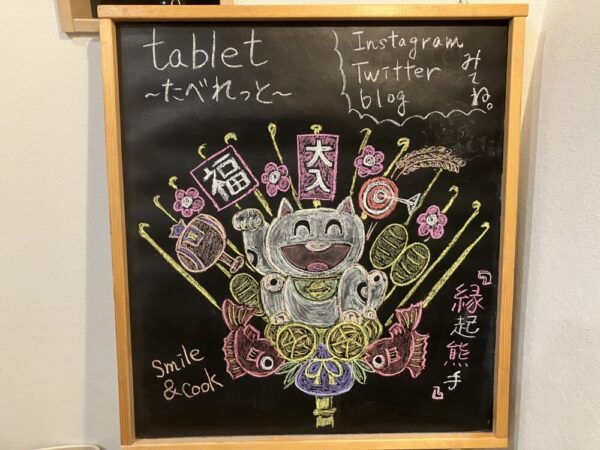 tablet
～たべれっと～
Instagram
Twitter
blog
みてね。
福
大入
『縁起熊手』
Smile
& cook